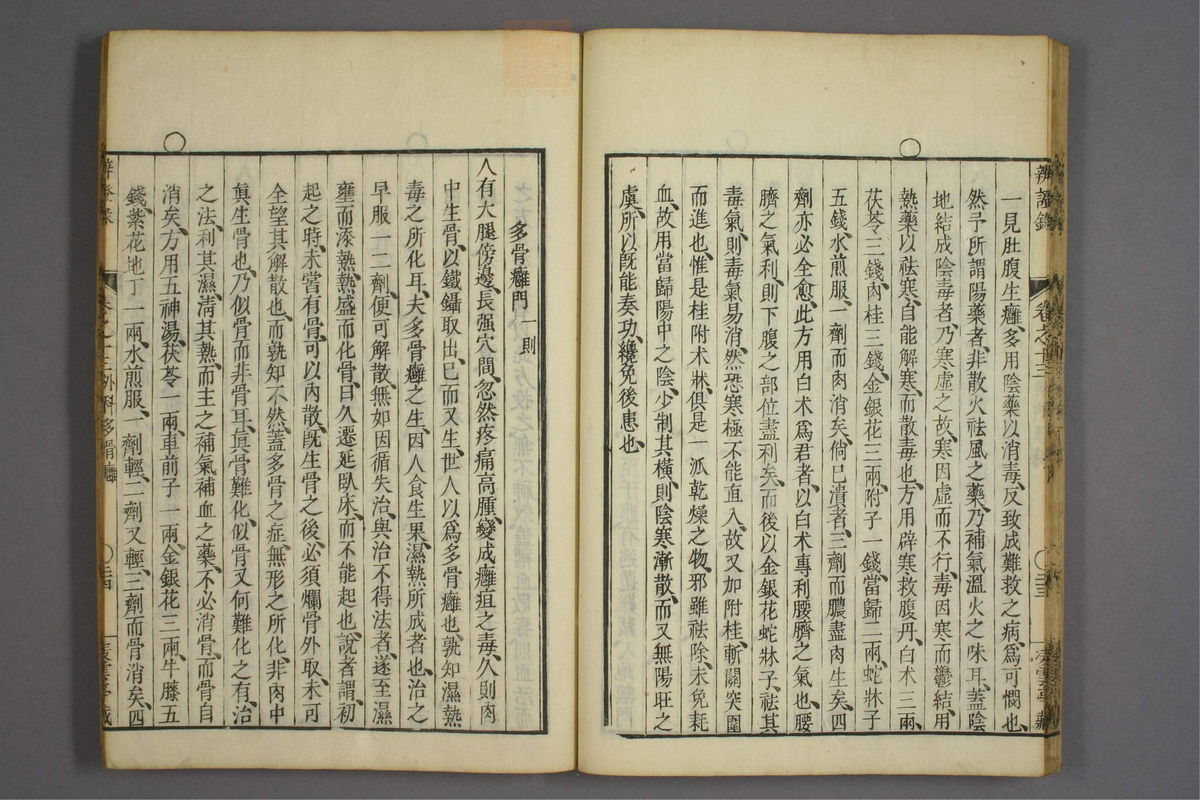 辨證錄　卷之十三
一見肚腹生癰、多用陰藥以消毒、反致成難救之病、爲可憫也、
然予所謂陽藥者、非散火祛風之藥、乃補氣溫火之味耳、蓋陰
地結成陰毒者、乃寒虛之故、寒因虛而不行、毒因寒而鬱結、用
熱藥以祛寒、自能解寒、而散毒也、方用辟寒救腹丹、白术三兩、
茯苓三錢、肉桂三錢、金銀花三兩、附子一錢、當歸二兩、蛇牀子
五錢、水煎服、一劑而肉消矣、倘已潰者、三劑而膿盡肉生矣、四
劑亦必全愈、此方用白术爲君者、以白术專利腰臍之氣也、腰
臍之氣利、則下腹之部位盡利矣、而後以金銀花蛇牀子、祛其
毒氣、則毒氣易消、然恐寒極不能直入、故又加附桂、斬關突圍
而進也、惟是桂附术牀、俱是一派乾燥之物、邪雖祛除、未免耗
血、故用當歸陽中之陰、少制其橫、則陰寒漸散、而又無陽旺之
虞、所以旣能奏功、纔免後患也、
多骨癰門一則
人有大腿傍邊、長强穴間、忽然疼痛高腫、變成癰疽之毒、久則肉
中生骨、以鐵鑷取出、已而又生、世人以爲多骨癰也、孰知濕熱
毒之所化耳、夫多骨癰之生、因人食生果、濕熱所成者也、治之
早服一二劑、便可解散、無如因循失治、與治不得法者、遂至濕
壅而添熱、熱盛而化骨、日久遷延臥床、而不能起也、說者謂初
起之時、未嘗有骨、可以內散、旣生骨之後、必須爛骨外取、未可
全望其解散也、而孰知不然、蓋多骨之症、無形之所化、非肉中
眞生骨也、乃似骨而非骨耳、眞骨難化、似骨又何難化之有、治
之法、利其濕、淸其熱、而主之補氣補血之藥、不必消骨、而骨自
消矣、方用五神湯、茯苓一兩、車前子一兩、金銀花三兩、牛膝五
錢、紫花地丁一兩、水煎服、一劑輕、二劑又輕、三劑而骨消矣、四
卷之十三外科多骨癰